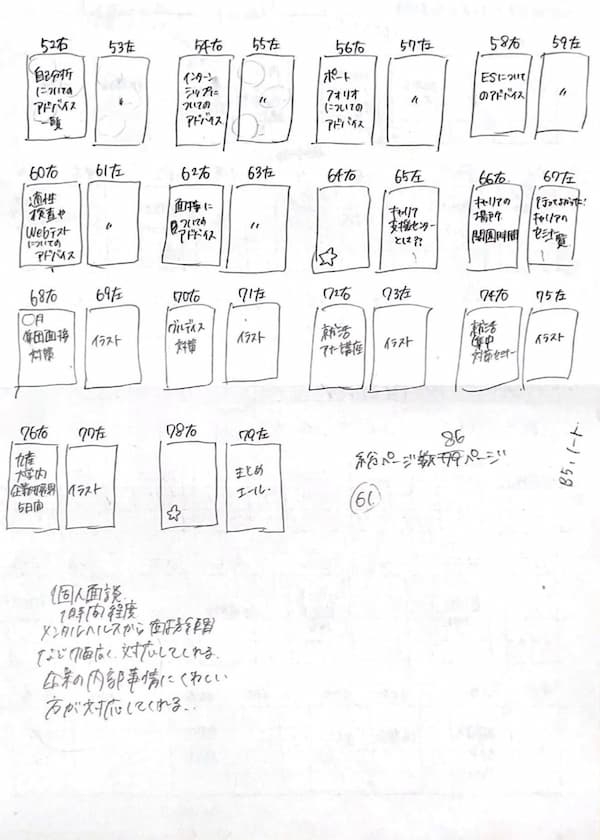 52右 53左 54右 55左 56右 57左 58右 59左
自己分析
についての
アドバイス
一覧
〃
インターン
シップに
ついての
アドバイス
〃
ポート
フォリオ
についての
アドバイス
〃
ESについて
のアドバイス
〃
60右 61左 62右 63左 64右 65左 66右 67左
適性
検査や
Webテスト
についての
アドバイス
〃
面接に
ついての
アドバイス
〃
☆
キャリア
支援センター
とは??
キャリアの
場所
開園時間
行ってよかった!
キャリアの
セミナー覧
68右 69左 70右 71左 72右 73左 74右 75左
〇月
集団面接
対策
イラスト
グルディス
対策
イラスト
就活
マナー講座
イラスト
就活
集中
対策セミナー
イラスト
76右 77左 78右 79左
九産
大学内
5日間
イラスト
☆
まとめ
エール.
86
総ページ数 79ページ
61
B5.ノート
個人面談.
1時間程度
メンタルヘルスから面接練習
など幅広く、対応してくれる.
企業の内部事情にくわしい
方が対応してくれる..